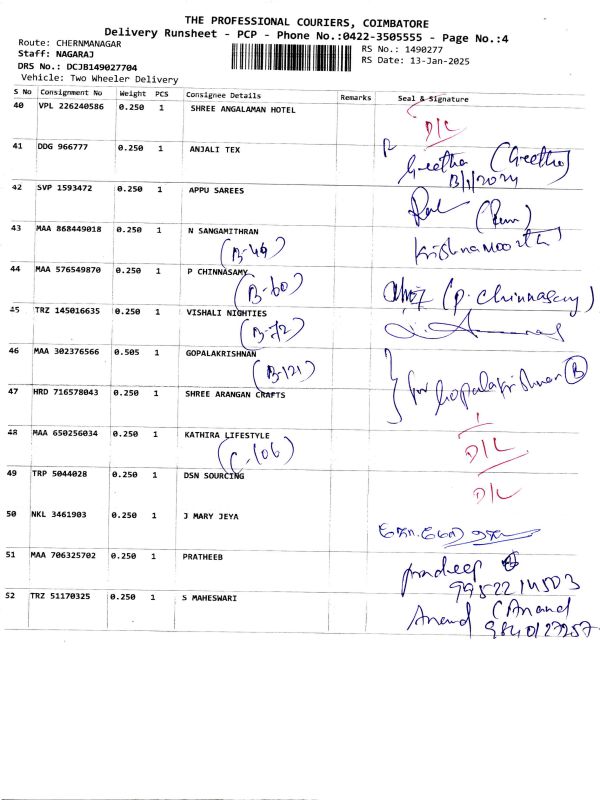 THE PROFESSIONAL COURIERS, COIMBATORE
Delivery Runsheet - PCP - Phone No.:0422-3505555 - Page No.:4
Route: CHERNMANAGAR
Staff: NAGARAJ
RS No.: 1490277
DRS No.: DCJB149027704
RS Date: 13-Jan-2025
Vehicle: Two Wheeler Delivery
S No Consignment No Weight PCS Consignee Details Remarks Seal & Signature
40 VPL 226240586 0.250 1 SHREE ANGALAMAN HOTEL
D/L
41 DDG 966777 0.250 1 ANJALI TEX
Geetha (Geetha)
13/1/2024
42 SVP 1593472 0.250 1 APPU SAREES
43 MAA 868449018 0.250 1 N SANGAMITHRAN
(B-46)
Krishnamoorthi
44 MAA 576549870 0.250 1 P CHINNASAMY
(B-60)
(P. Chinnasamy)
45 TRZ 145016635 0.250 1 VISHALI NIGHTIES
(B-72)
46 MAA 302376566 0.505 1 GOPALAKRISHNAN
(B-121)
for Gopalakrishnan B
47 HRD 716578043 0.250 1 SHREE ARANGAN CRAFTS
48 MAA 650256034 0.250 1 KATHIRA LIFESTYLE
(C-106)
D/L
49 TRP 5044028 0.250 1 DSN SOURCING
D/L
50 NKL 3461903 0.250 1 J MARY JEYA
51 MAA 706325702 0.250 1 PRATHEEB
Pradeep
9952214503
52 TRZ 51170325 0.250 1 S MAHESWARI
Anand (Anand
9840127257